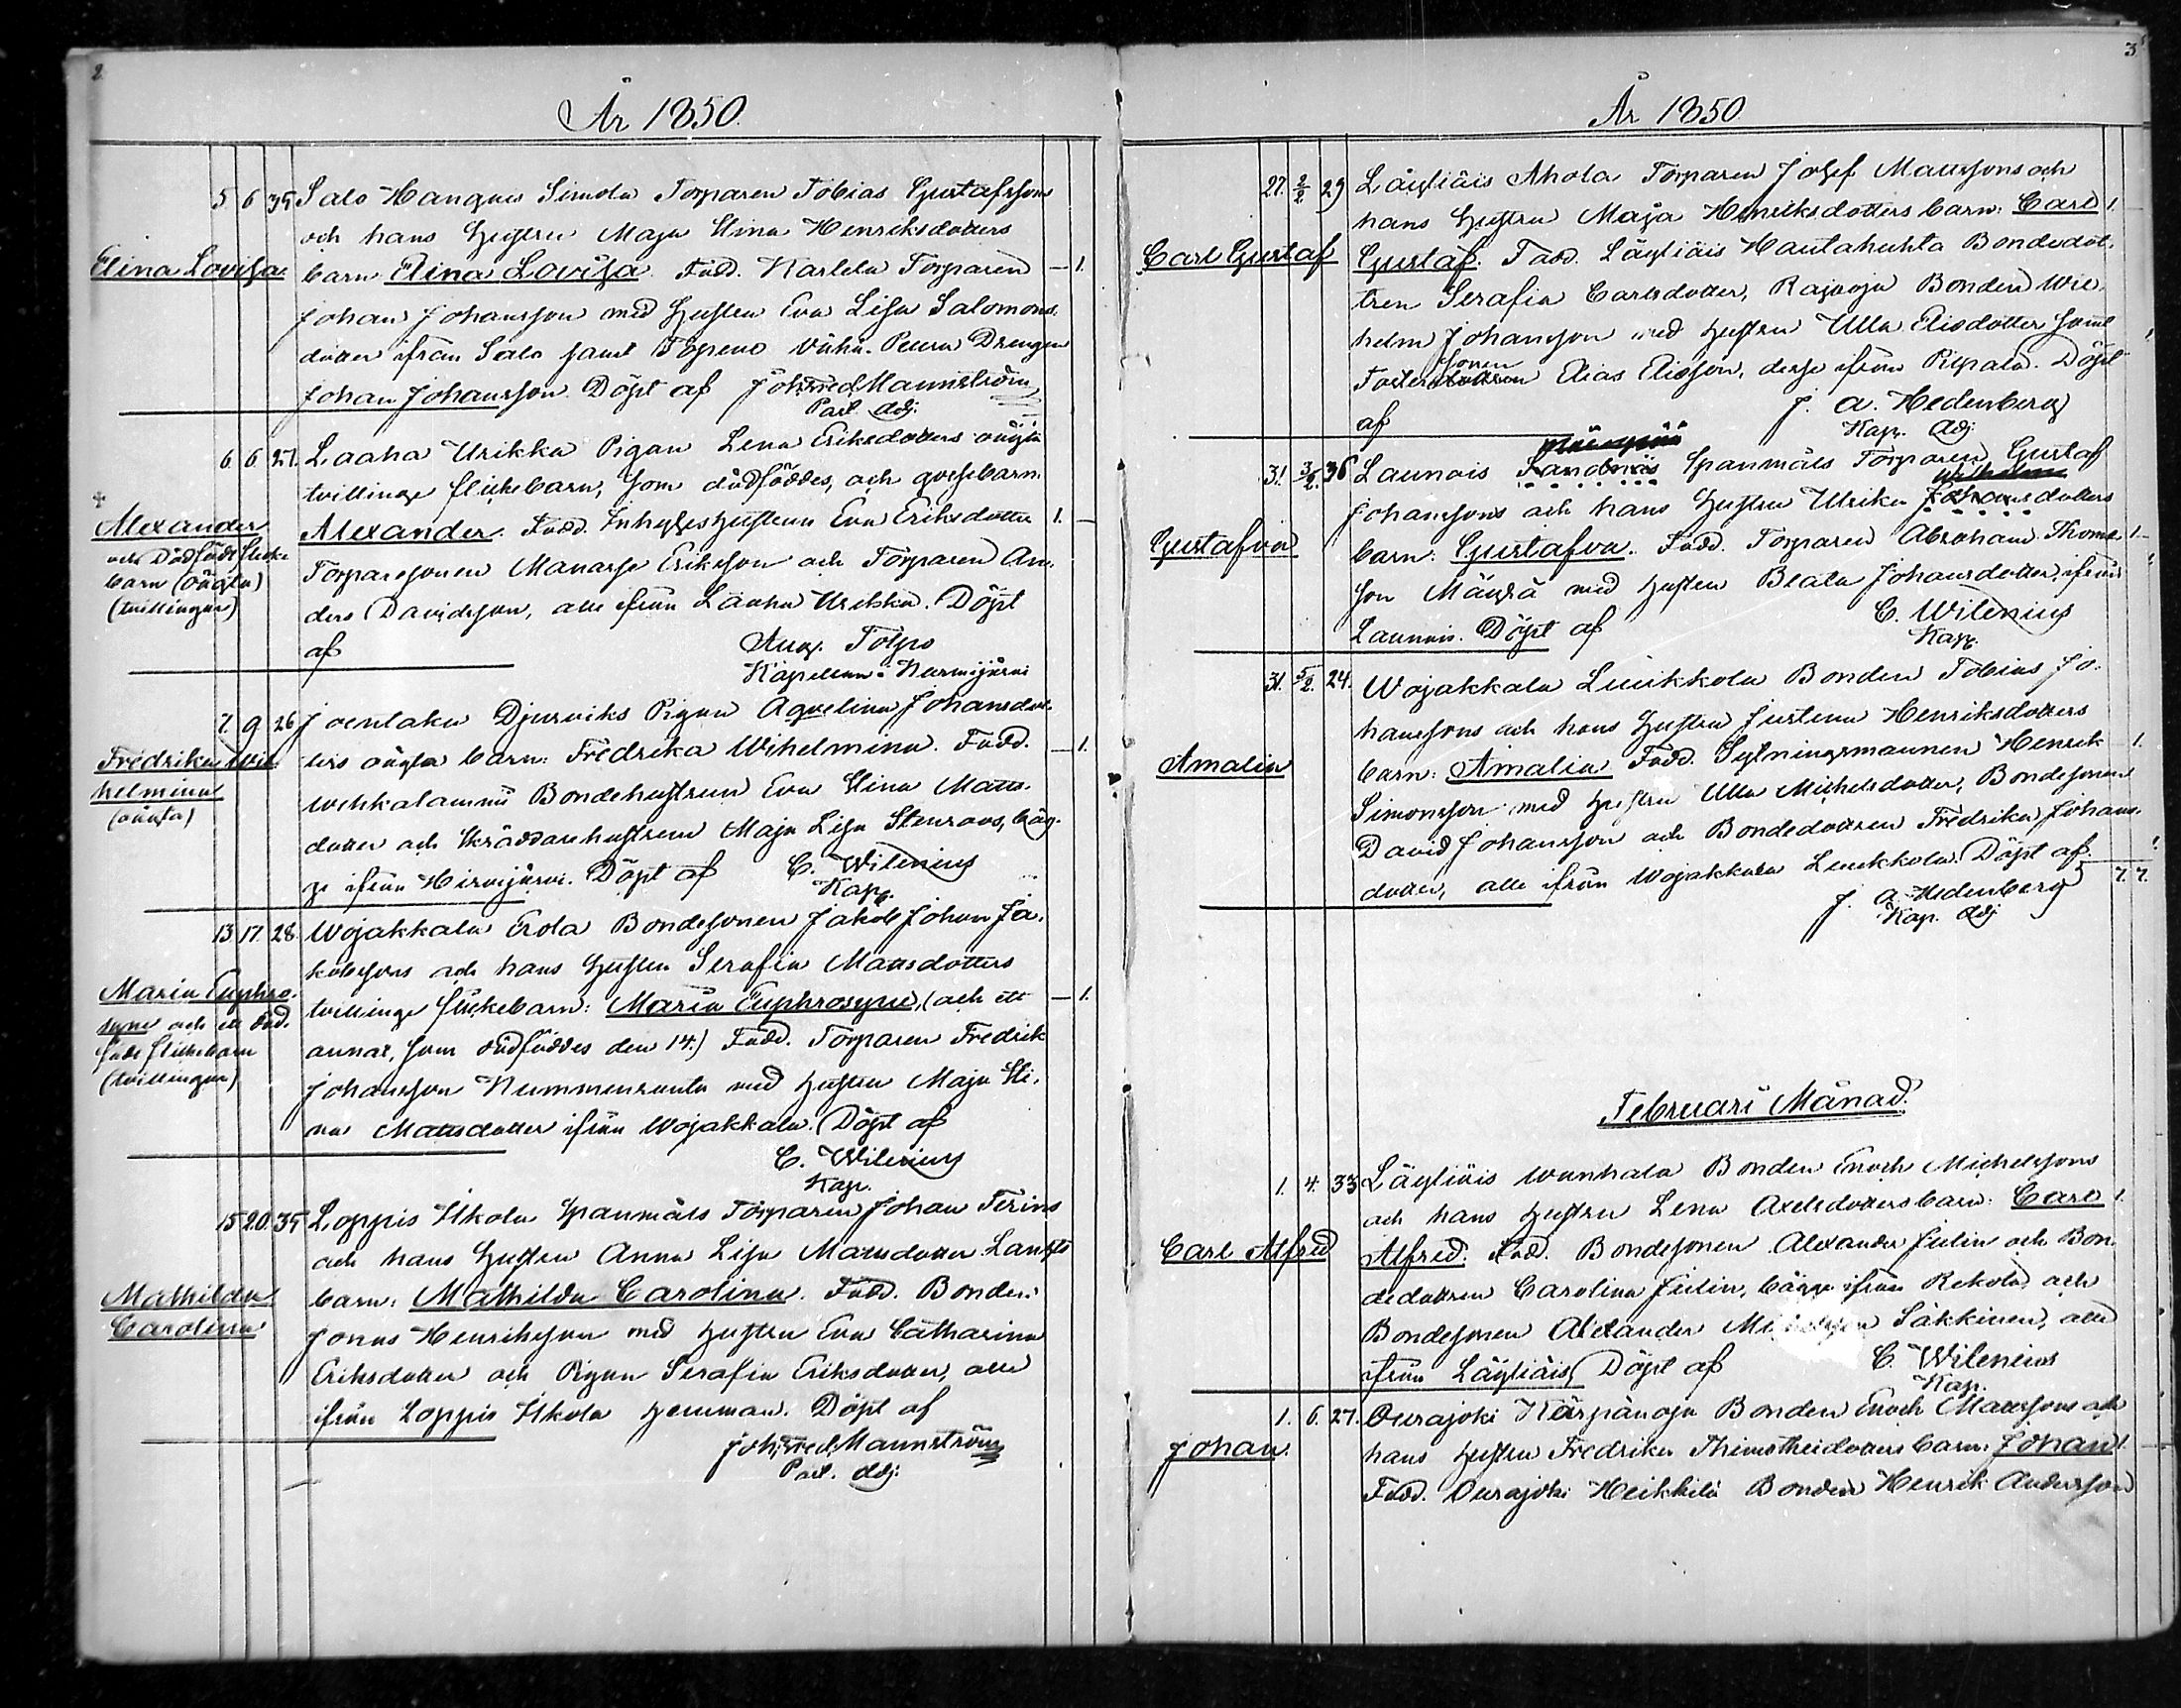 2
År 1850.
5 6 35 Salo Hanquis Simola Torparen Tobias Gustafssons
och hans Hustru Maja Stina Henriksdotters
Elina Lovisa. barn Elina Lovisa. Fadd. Karlela Torparen — 1.
Johan Johansson med Hustru Eva Lisa Salomons
dotter ifrån Salo samt Topeno Vähä-Peura Drengen
Johan Johansson. Döpt af Joh: Fred. Mannström
Past. Adj.
6. 6. 27. Laaha Urikka Pigan Lena Eriksdotters oägta
tvillinge flickebarn, som dödföddes, och gossebarn:
Alexander Alexander. Fadd. Inhyseshustrun Eva Eriksdotter 1. —
och Dödfödt flicke
barn (oägta) Torparesonen Manasse Eriksson och Torparen An-
(tvillingar) ders Davidsson, alla ifrån Laaha Urikka. Döpt
af Aug. Tolpo
Kapellan i Nurmijärvi
7. 9. 26 Joenlaka Djurviks Pigan Aqvelina Johansdot-
Fredrika Wil- ters oägta barn: Fredrika Wihelmina. Fadd. — 1.
helmina
(oägta) Bondehustrun Eva Stina Matts-
dotter och Skräddarehustrun Maja Lisa Stenroos, bäg-
ge ifrån Hirvijärvi. Döpt af C. Wilenius
Kap.
13 17. 28. Wojakkala Erola Bondesonen Jakob Johan Ja-
kobssons och hans Hustru Serafia Mattsdotters
Maria Euphro- tvillinge flickebarn: Maria Euphrosyne, (och ett — 1.
syne och ett död-
födt flickebarn annat, som dödföddes den 14.) Fadd. Torparen Fredrik
(tvillingar) Johansson Nummenranta med Hustru Maja Sti-
na Mattsdotter ifrån Wojakkala. Döpt af
C. Wilenius
Kap.
15 20. 35 Loppis Ilkola Spanmåls Torparen Johan Ferins
och hans Hustru Anna Lisa Mattsdotter
Mathilda barn: Mathilda Carolina. Fadd. Bonden
Carolina Jonas Henriksson med Hustru Eva Catharina
Eriksdotter och Pigan Serafia Eriksdotter, alle
ifrån Loppis Ilkola hemman. Döpt af
Joh: Fred. Mannström
Past. Adj.
3
År 1850
27. 2/2 29 Läyliäis Ahola Torparen Josef Mattssons och
hans Hustru Maja Henriksdotters barn: Carl 1.
Carl Gustaf Gustaf. Fadd. Läyliäis Hautahuhta Bondedot-
tren Serafia Carlsdotter, Rajaoja Bonden Wil-
helm Johansson med Hustru Ulla Eliedotter samt
sonen
Foster Elias Eliasson, desse ifrån Pispala. Döpt
af J. A. Hedenberg
Kap. Adj
31. 3/2. 36 Launois Spanmåls Torparen Gustaf
Johanssons och hans Hustru Ulrika Johansdotters
Gustafva barn: Gustafva. Fadd. Torparen Abraham Thoma- 1 —
son med Hustru Beata Johansdotter, ifrån
Launois. Döpt af C. Wilenius
Kap.
31. 5/2. 24. Wojakkala Luukkola Bonden Tobias Jo-
hanssons och hans Hustru Justina Henriksdotters
Amalia barn: Amalia. Fadd. Sytningsmannen Henrik — 1.
Simonsson med Hustru Ulla Michelsdotter, Bondesonen
David Johansson och Bondedottren Fredrika Johans-
dotter, alle ifrån Wojakkala Luukkola. Döpt af 7. 7.
J. A. Hedenberg
Kap. Adj
Februari Månad.
1. 4. 33 Läyliäis Wanhala Bonden Enoch Michelssons
och hans Hustru Lena Axelsdotters barn: Carl 1.
Carl Alfred Alfred. Fadd. Bondesonen Alexander Julin och Bon-
dedottren Carolina Julin, bägge ifrån Rekola, och
Bondesonen Alexander Säkkinen, alla
ifrån Läyliäis. Döpt af C. Wilenius
Kap.
1. 6. 27. Ourajoki Kärpänoja Bonden Enoch Mattssons och
Johan. hans Hustru Fredrika Thimotheidotters barn: Johan 1. —
Fadd. Ourajoki Heikkilä Bonden Henrik Andersson